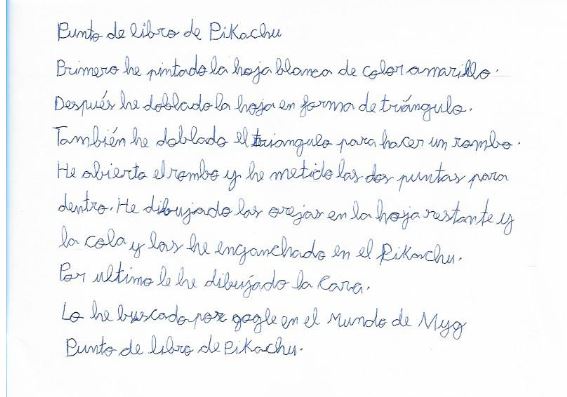 Punto de libro de Pikachu
Primero he pintado la hoja blanca de color amarillo.
Después he doblado la hoja en forma de triángulo.
También he doblado el triangulo para hacer un rombo.
He abierto el rombo y he metido las dos puntas para
dentro. He dibujado las orejas en la hoja restante y
la cola y las he enganchado en el Pikachu.
Por ultimo le he dibujado la cara.
Lo he buscado por gogle en el Mundo de Myg
Punto de libro de Pikachu.